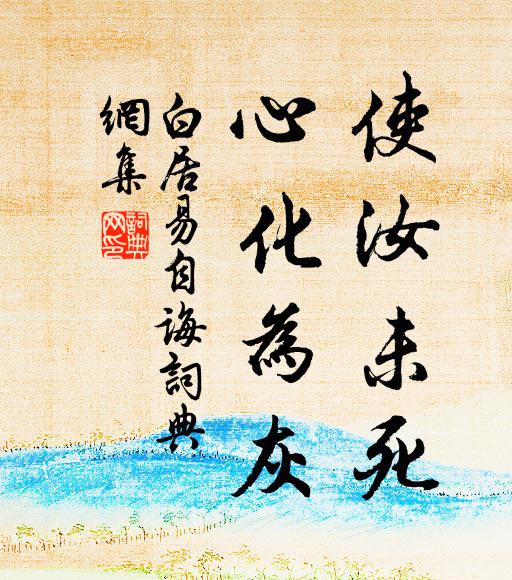 使汝未死
心化為灰
白居易自誨詞典
網集
詞典网印